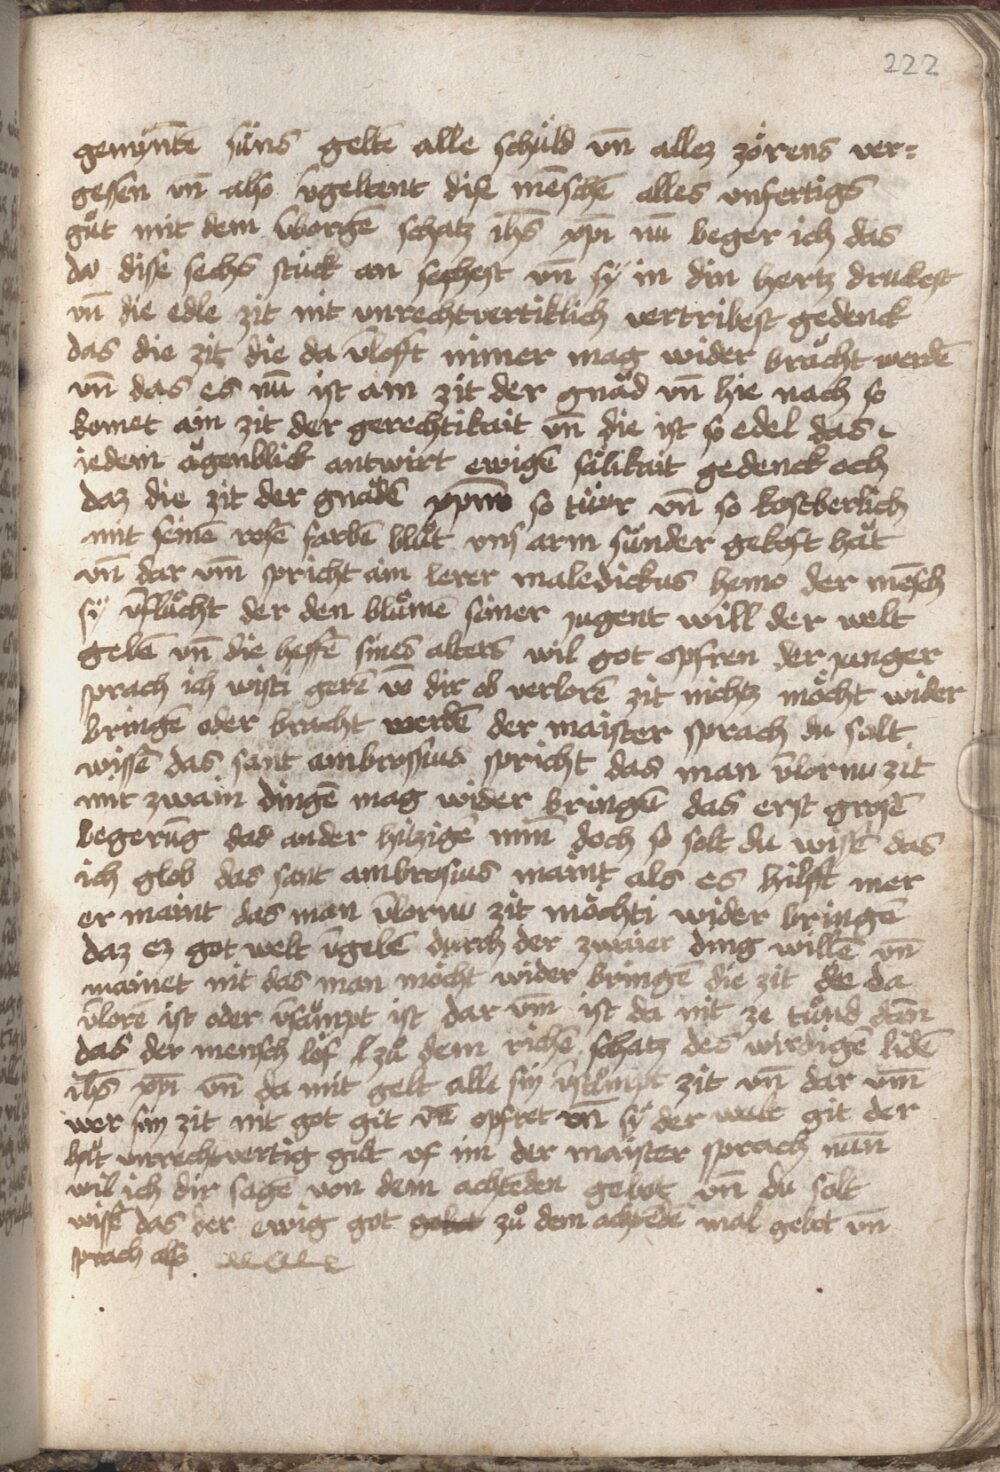 222
gemȳnte͂ sůns gelte͂ alle schuld vn͂ allez zorens ver=
gessen vn͂ also v͂geltent dise me͂sche͂ alles vnfertigs
gůt mit dem v͂borge͂ schatz ih͂s xp͂i nu͂ beger ich das
du dise sechs stuck an sechest vn͂ sy in din hertz druckest
vn͂ die edle zit nit vnrechtvertiklich vertribest gedenck
das die zit die da v͂loft nimer mag wider bracht werde͂
vn͂ das es nu͂ ist ain zit der gnad vn͂ hie nach so
komet ain zit der gerechtikait vn͂ die ist so edel das
iedem ågenblick antwirt ewige͂ sålikait gedenck och
daz die zit der gnade͂ so tůr vn͂ so kostberlich
mit seine͂ rose͂ farbe͂ blůt vns arm sůnder gekost håt
vn͂ dar vm͂ spricht ain lerer maledickus homo der me͂sch
sy v͂flůcht der den blůme͂ siner jugent will der welt
gebe͂ vn͂ die heffe͂ sines alters wil got opfren der junger
sprach ich wisti gere͂ vo͂ dir ob verlore͂ zit nichtz mo̊cht wider
bringe͂ oder bracht werde͂ der maister sprach du solt
wisse͂ das sant ambrossius spricht das man v͂lornu zit
mit zwain dinge͂ mag wider bringe͂ das erst grose͂
begeru͂g das ander hitzige͂ min͂ doch so solt du wisse͂ das
ich glob das sant ambrosius maint als es hilfft mer
er maint das man v͂lornu zit mo̊chti wider bringe͂
daz ez got welt v͂gebe͂ durch der zwaier ding wille͂ vn͂
mainet nit das man mo̊cht wider bringe͂ die zit die da
v͂lore͂ ist oder v͂sůmpt ist dar vm͂ ist da nit ze tůnd dan͂
das der mensch lof zů dem riche͂ schatz des wirdige͂ lide͂
ih͂s xp͂i vn͂ da mit gelt alle sin zit vn͂ dar vm͂
wer sin zit nit got git vn͂ opfret vn͂ sy der welt git der
håt vnrechtvertig gůt vf im der maister sprach nun͂
wil ich dir sage͂ von dem achteden gebot vn͂ du solt
wisse͂ das der ewig got gebot zů dem achtede͂ mal gebot vn͂
sprach also